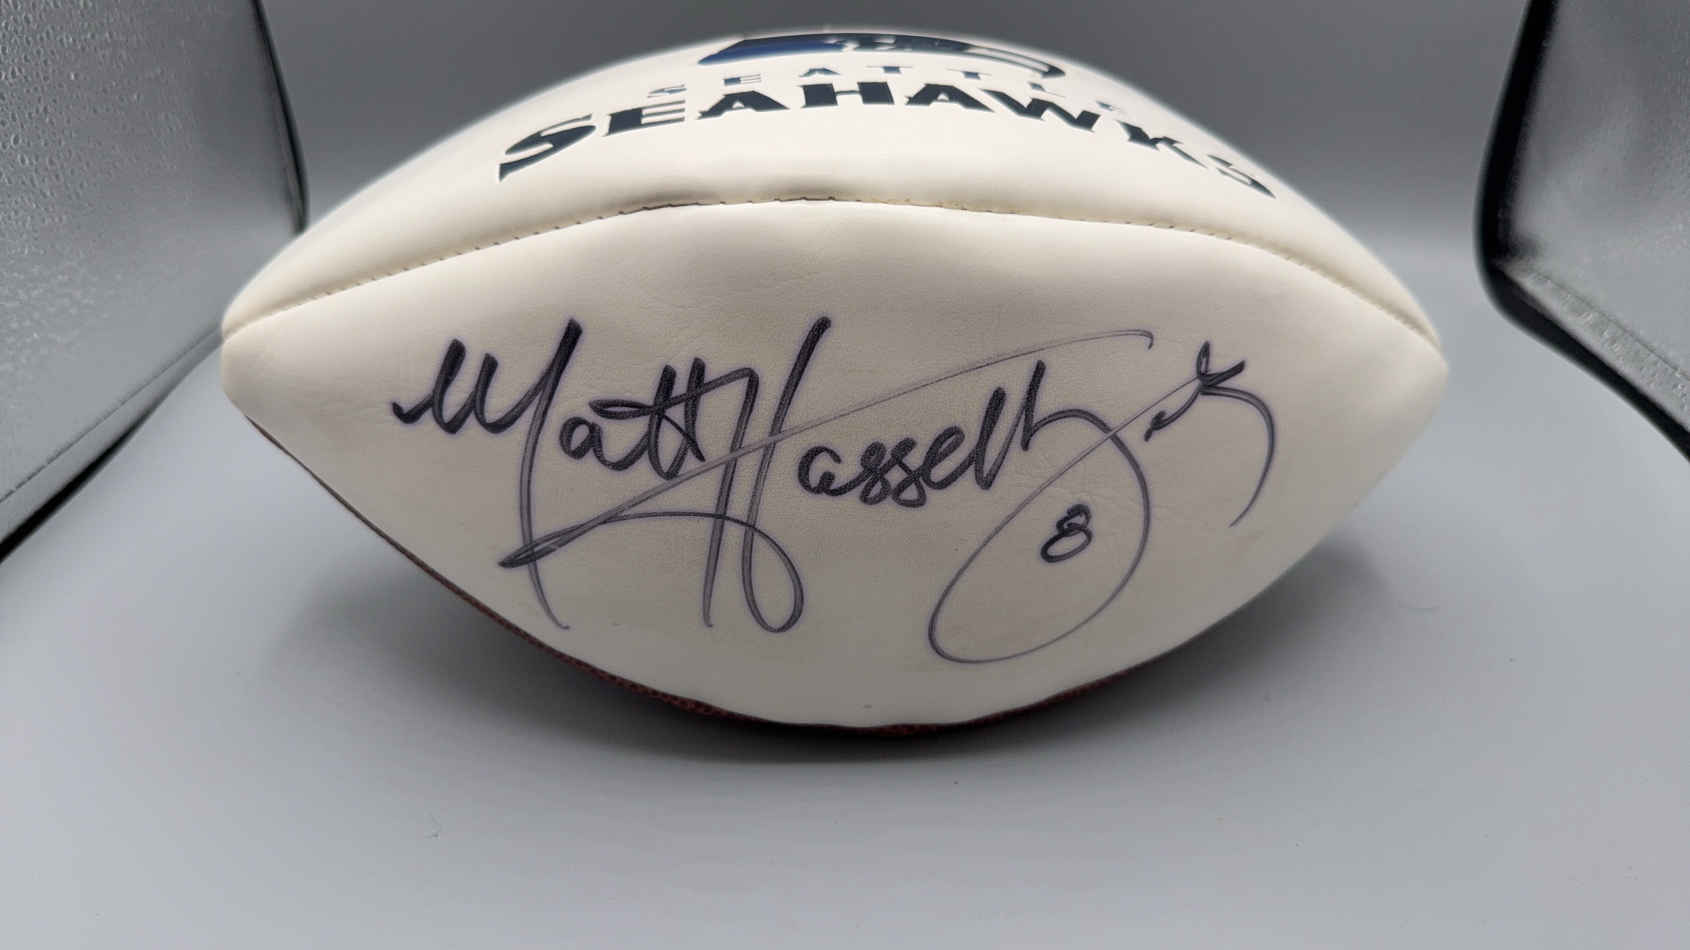 SEATTLE
SEAHAWKS
Matt Hasselbeck
8